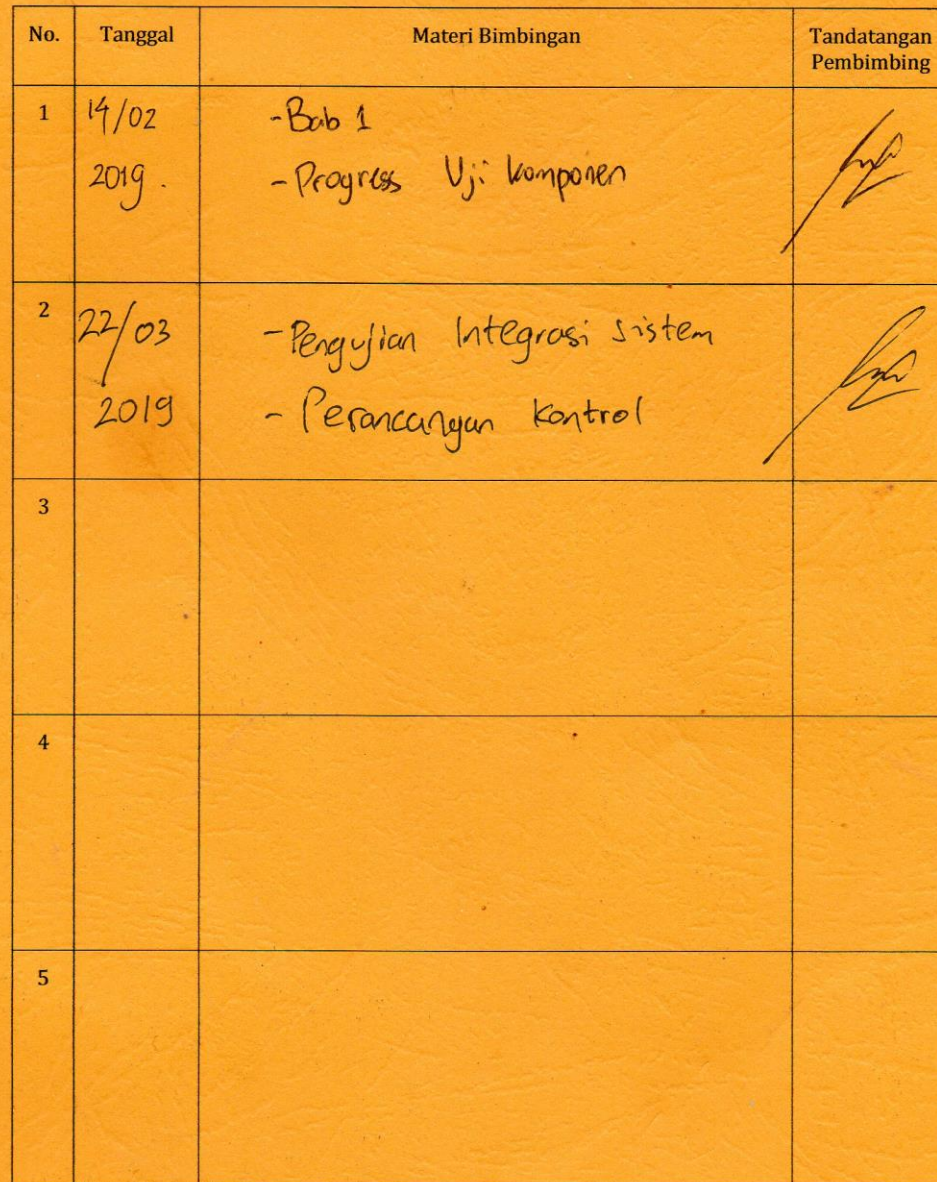 No. Tanggal Materi Bimbingan Tandatangan
Pembimbing
1 14/02 -Bab 1
2019. -Progress Uji komponen
2 22/03 -Pengujian Integrasi sistem
2019 - Perancangan kontrol
3
4
5